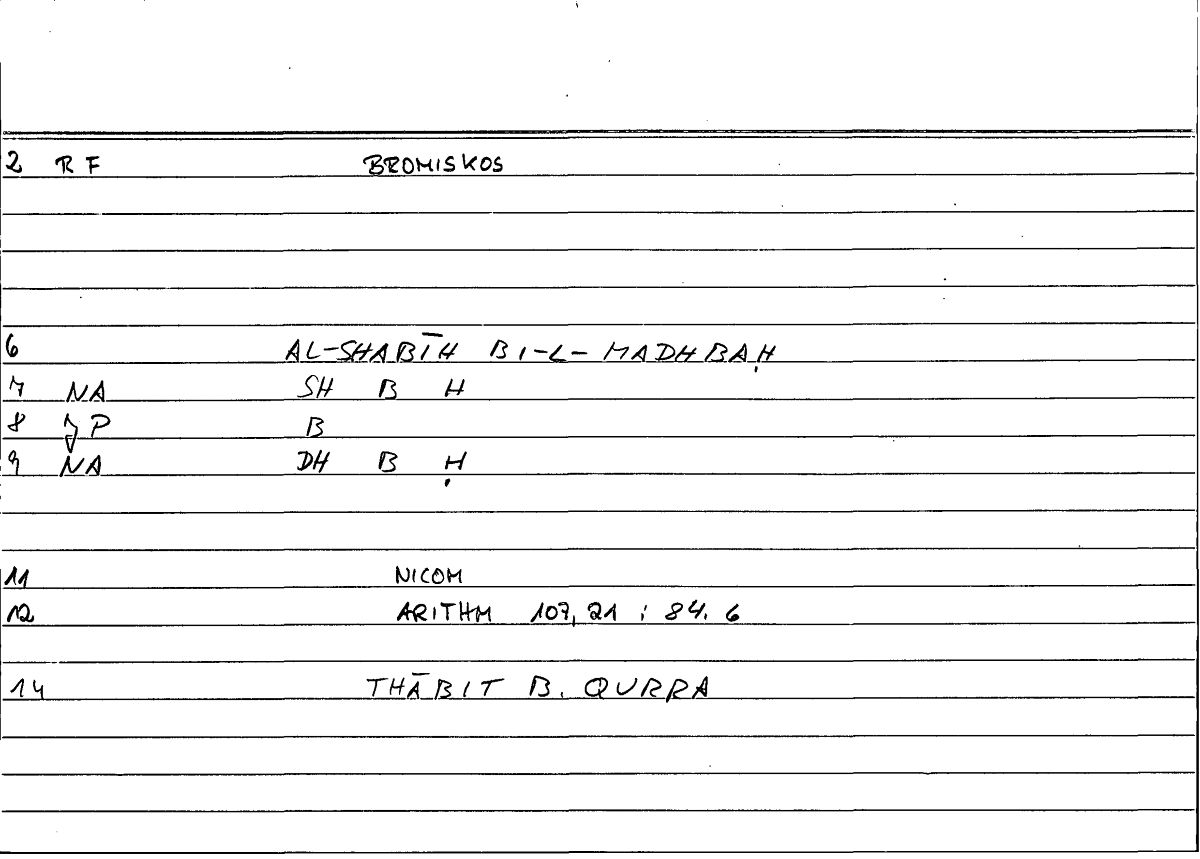 2 RF BROMISKOS
6 AL-SHABĪH BI-L-MADHBAḤ
7 NA SH B H
8 P B
9 NA DH B Ḥ
11 NICOM
12 ARITHM 107, 21 : 84. 6
14 THĀBIT B. QURRA